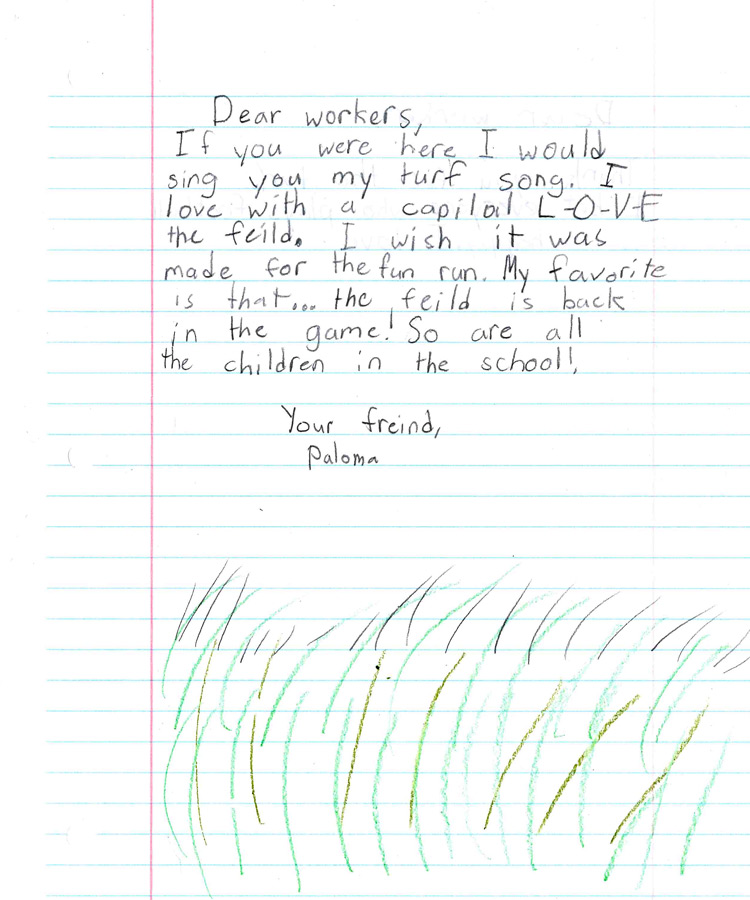 Dear workers,
If you were here I would
sing you my turf song. I
love with a capital L-O-V-E
the feild. I wish it was
made for the fun run. My favorite
is that... the feild is back
in the game! So are all
the children in the school!
Your freind,
Paloma